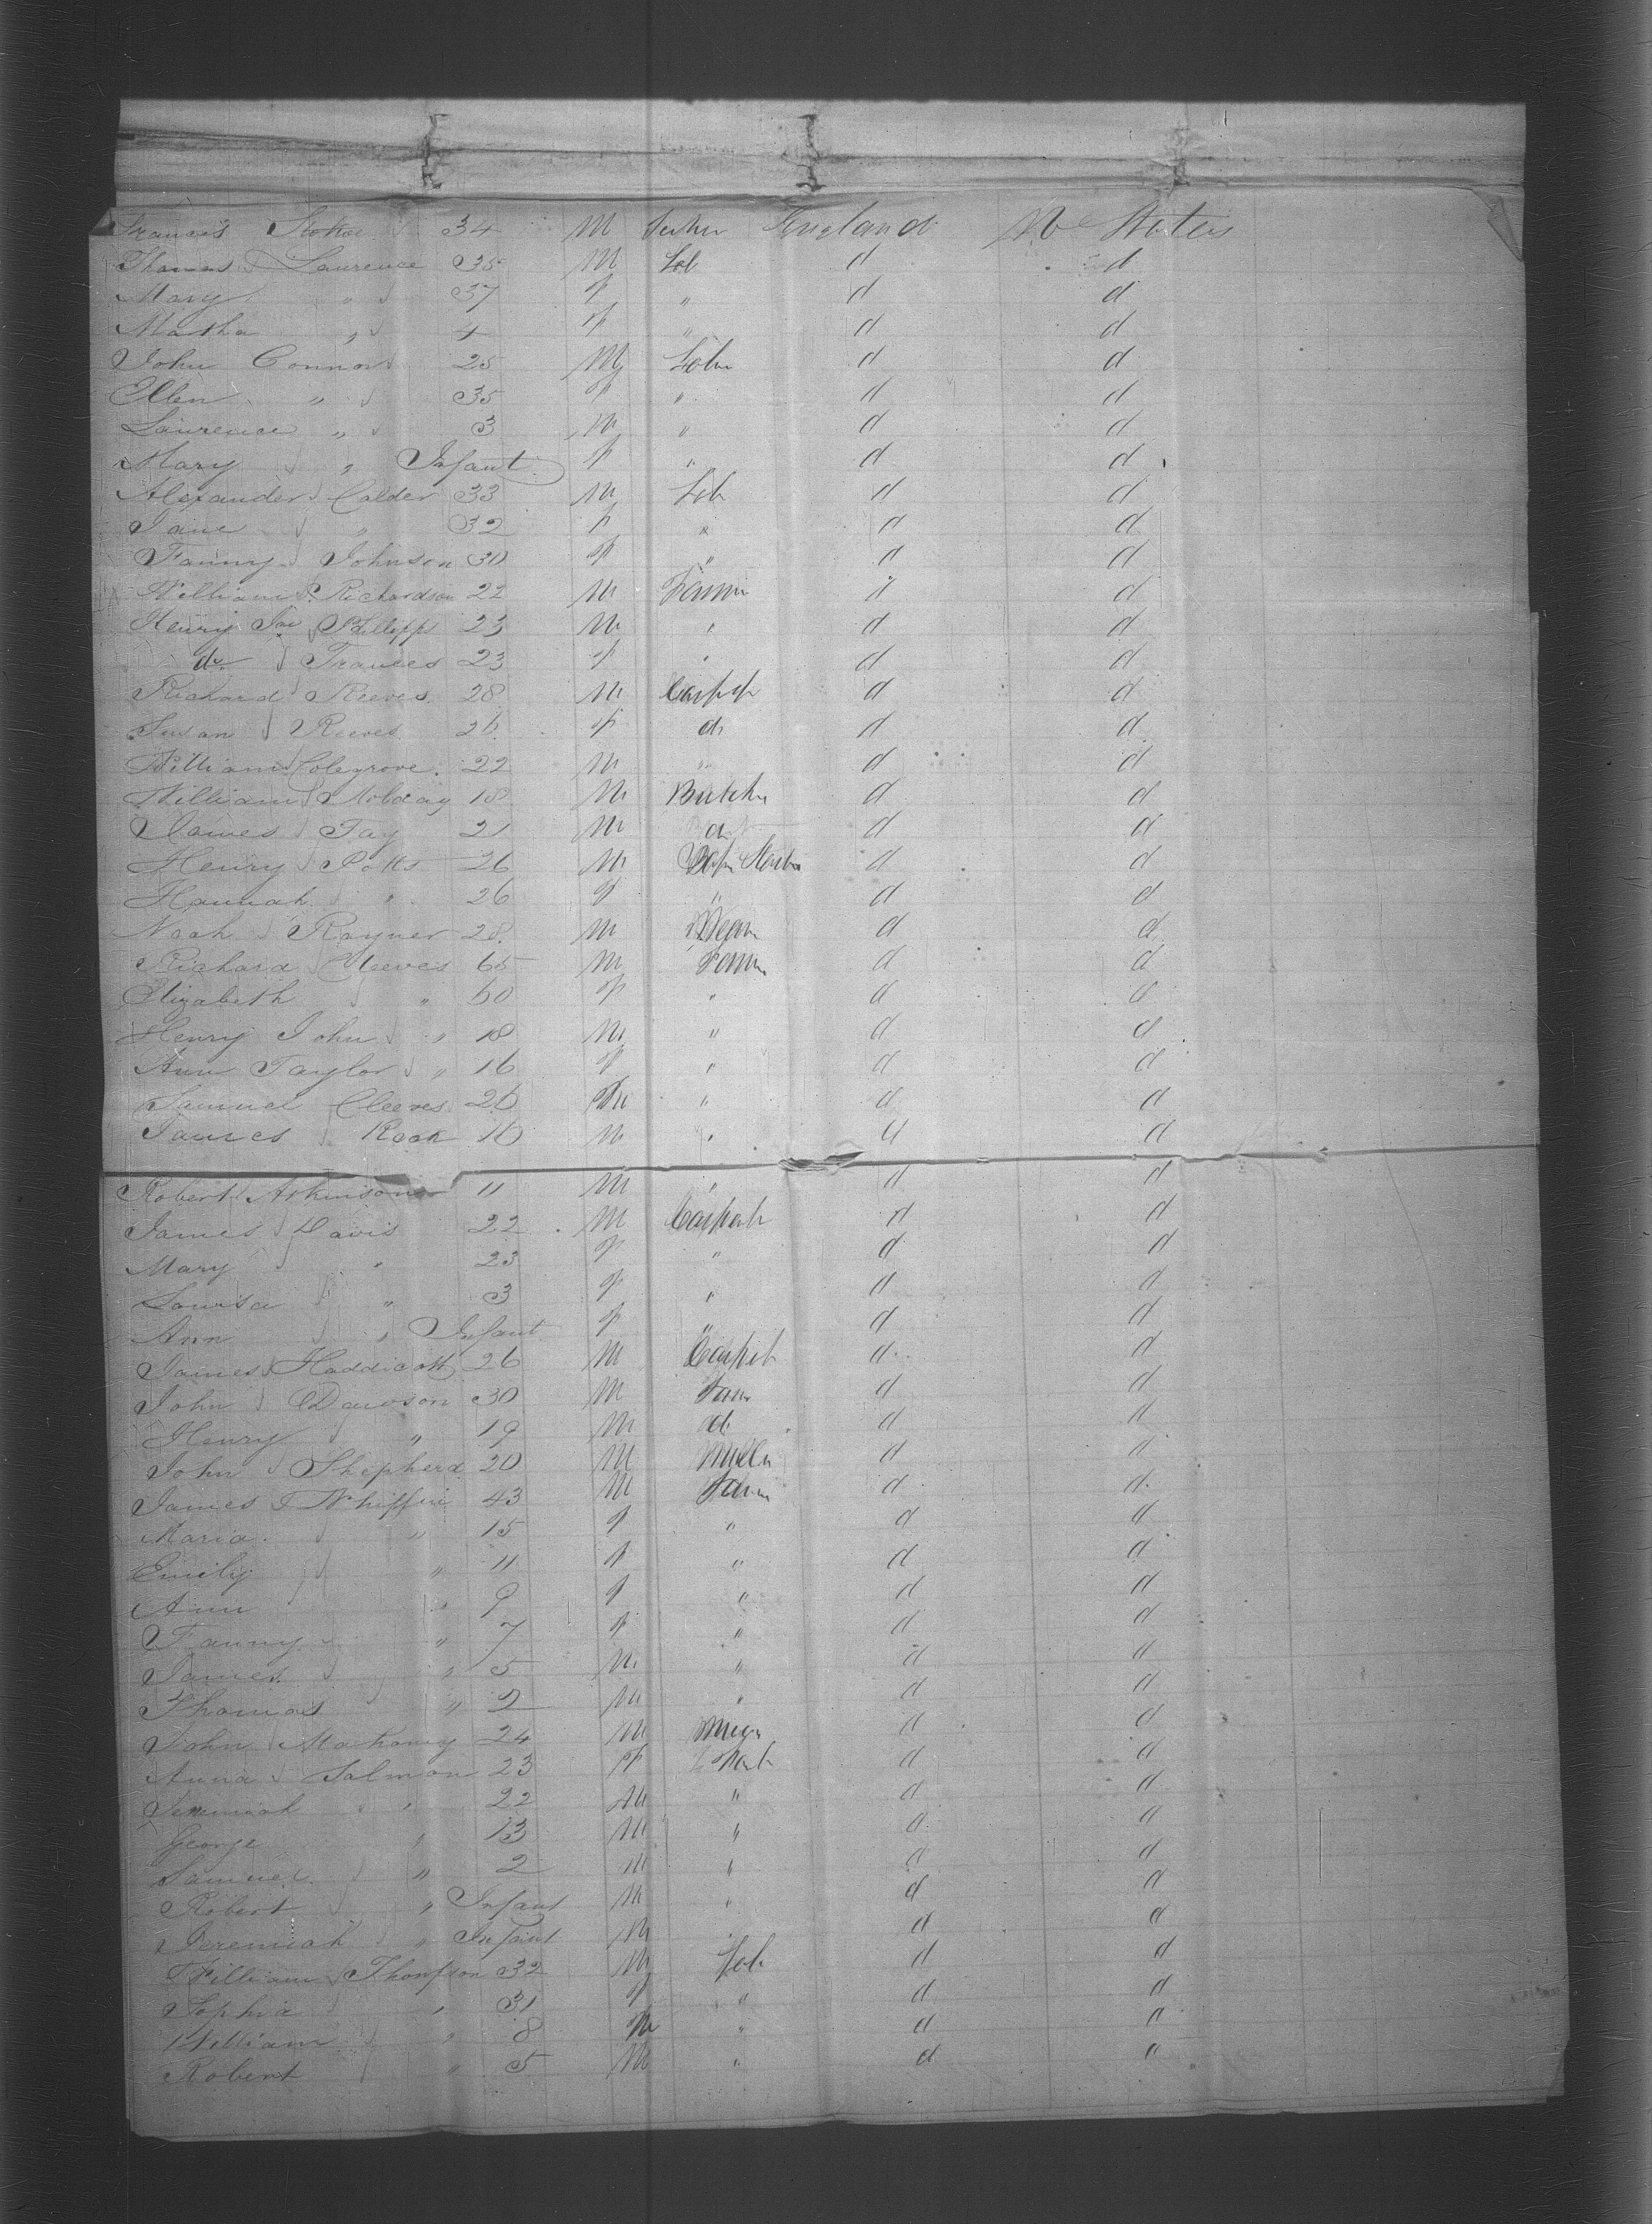 Francis Stokoe 34 M England U States
Thomas Laurence 35 M Lab d d
Mary " 37 f " d d
Martha " 4 f " d d
John Connor 25 M Labr d d
Ellen " 35 f " d d
Laurence " 3 M " d d
Mary " Infant f " d d
Alexander Calder 33 M Lab d d
Jane " 32 f " d d
Fanny Johnson 30 f " d d
William P. Richardson 22 M Farmr d d
Henry Philipps 23 M " d d
do Frances 23 f " d d
Richard Reeves 28 M Carptr d d
Susan Reeves 26 f do d d
William Colegrove 22 M " d d
William Holday 18 M Butcher d d
James Fay 21 M d d d
Henry Potts 26 M d d
Hannah " 26 f " d d
Noah Rayner 28 M d d
Richard Cleeves 65 M Farmr d d
Elizabeth " 60 f " d d
Henry John " 18 M " d d
Ann Taylor " 16 f " d d
Samuel Cleeves 26 M " d d
James Rook 16 M " d d
Robert Atkinson 11 M " d d
James Davis 22 M Carpentr d d
Mary " 23 f " d d
Louisa " 3 f " d d
Ann " Infant f " d d
James Haddicott 26 M Carpetr d d
John Dawson 30 M Farmr d d
Henry " 19 M do d d
John Shepherd 20 M Miller d d
James Whiffin 43 M Farmr d d
Maria " 15 f " d d
Emily " 11 f " d d
Ann " 9 f " d d
Fanny " 7 f " d d
James " 5 M " d d
Thomas " 2 M " d d
John Mahoney 24 M d d
Anna Salmon 23 f d d
Jeremiah " 22 M " d d
George " 13 M " d d
Samuel " 2 M " d d
Robert " Infant M " d d
Jeremiah " Infant M d d
William Thompson 32 M Lab d d
Sophia " 31 f " d d
William " 8 M " d d
Robert " 5 M " d d